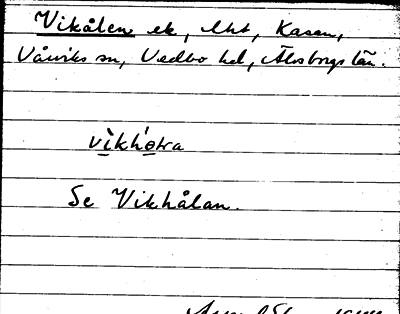 Vikålen ek, Kasen,
Vårviks sn, Vedbo hd, Älvsborgs län.
vikhåra
Se Vikhålan.